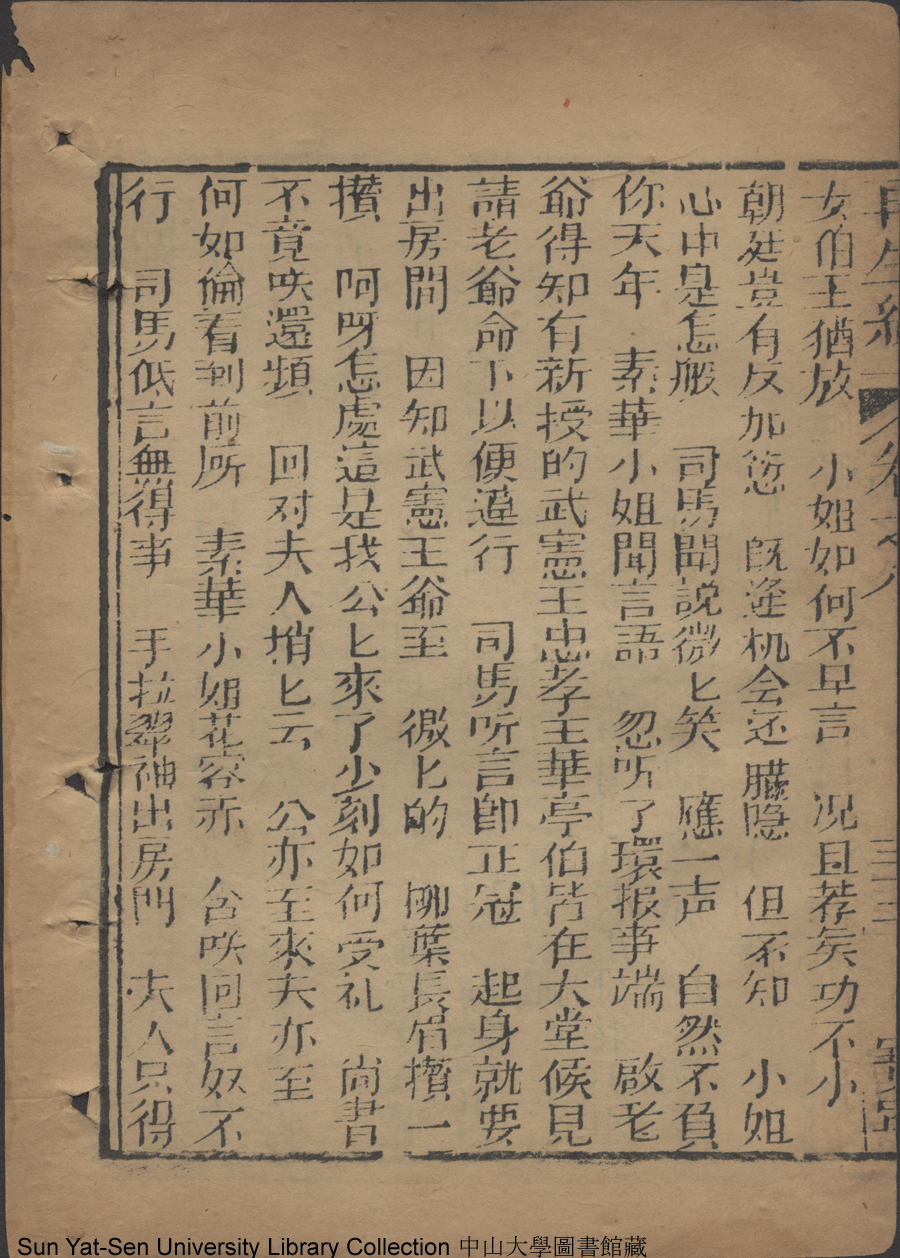 再生緣 卷之八 三十三
女伯王猶放 小姐如何不早言 况且荐矣功不小
朝廷豈有反加愆 既逢机会还臓隐 但不知 小姐
心中是怎般 司馬聞説微匕笑 應一声 自然不負
你天年 素華小姐聞言語 忽听了環报事端 啟老
爺得知有新授的武憲王忠孝王華亭伯皆在大堂候見
請老爺命下以便遵行 司馬听言即正冠 起身就要
出房間 因知武憲王爺至 微匕的 柳葉長眉攢一
攢 阿呀怎處這是我公匕來了少刻如何受礼 尚書
不竟咲還頻 回对夫人捎匕云 公亦至來夫亦至
何如倫看到前所 素華小姐花容赤 含咲回言奴不
行 司馬低言無得事 手拉翠袖出房門 夫人只得
Sun Yat-Sen University Library Collection 中山大學圖書館藏